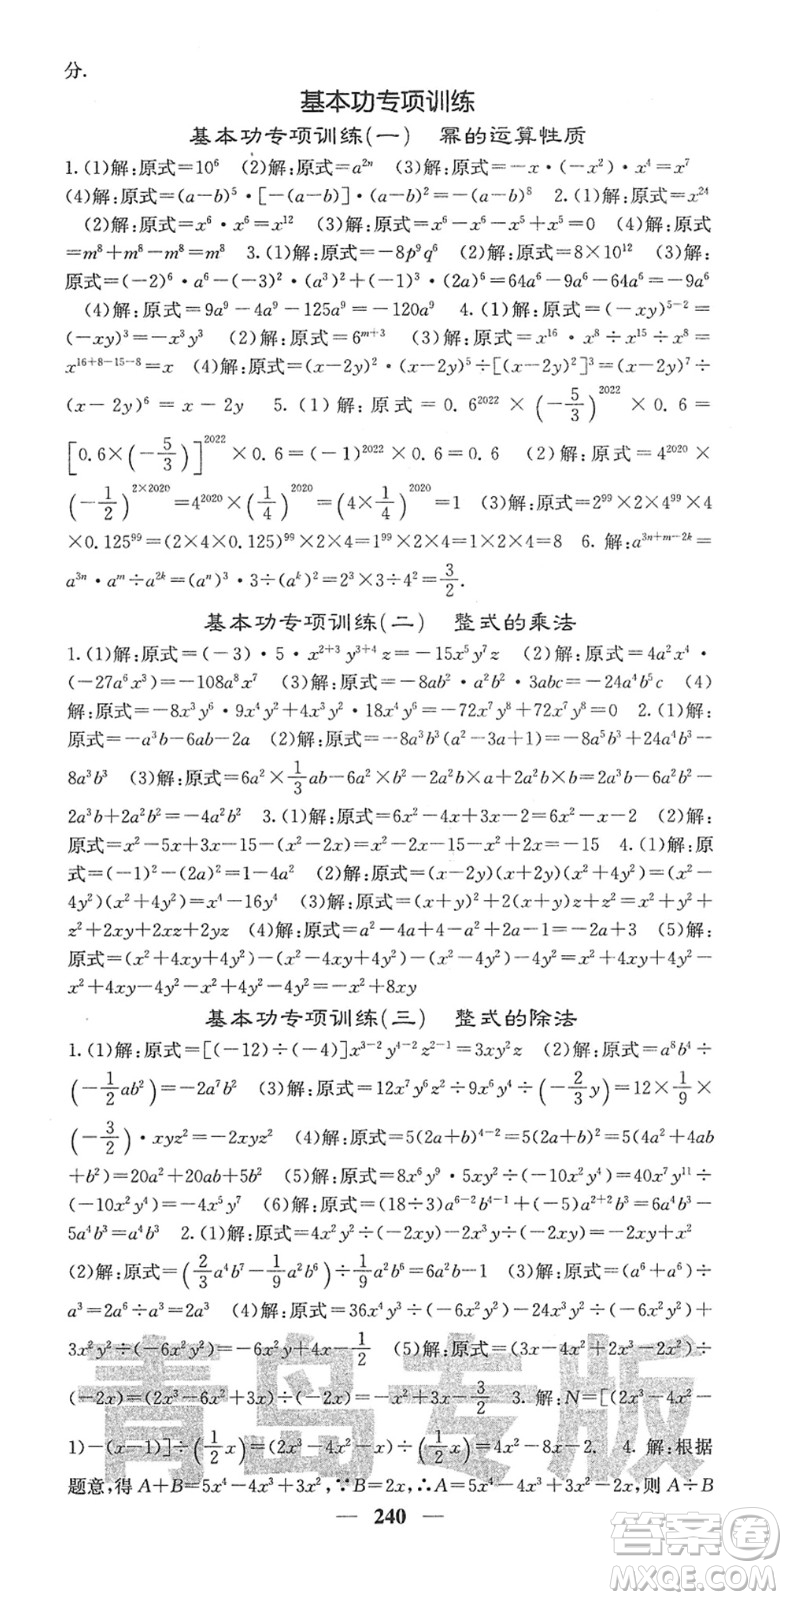 分.
基本功专项训练
基本功专项训练(一) 幂的运算性质
1.(1)解:原式=10⁶ (2)解:原式=a²ⁿ (3)解:原式=-x·(-x²)·x⁴=x⁷
(4)解:原式=(a-b)⁵·[-(a-b)]·(a-b)²=-(a-b)⁸ 2.(1)解:原式=x²⁴
(2)解:原式=x⁶·x⁶=x¹² (3)解:原式=x⁶-x⁶-x⁵+x⁵=0 (4)解:原式
=m⁸+m⁸-m⁸=m⁸ 3.(1)解:原式=-8p⁹q⁶ (2)解:原式=8×10¹² (3)解:
原式=(-2)⁶·a⁶-(-3)²·(a³)²+(-1)³·(2a)⁶=64a⁶-9a⁶-64a⁶=-9a⁶
(4)解:原式=9a⁹-4a⁹-125a⁹=-120a⁹ 4.(1)解:原式=(-xy)⁵⁻²=
(-xy)³=-x³y³ (2)解:原式=6ᵐ⁺³ (3)解:原式=x¹⁶·x⁸÷x¹⁵÷x⁸=
x¹⁶⁺⁸⁻¹⁵⁻⁸=x (4)解:原式=(x-2y)²·(x-2y)⁵÷[(x-2y)²]³=(x-2y)⁷÷
(x-2y)⁶=x-2y 5.(1)解:原式=0.6²⁰²²×(-5/3)²⁰²²×0.6=
[0.6×(-5/3)]²⁰²²×0.6=(-1)²⁰²²×0.6=0.6 (2)解:原式=4²⁰²⁰×
(-1/2)²ˣ²⁰²⁰=4²⁰²⁰×(1/4)²⁰²⁰=(4×1/4)²⁰²⁰=1 (3)解:原式=2⁹⁹×2×4⁹⁹×4
×0.125⁹⁹=(2×4×0.125)⁹⁹×2×4=1⁹⁹×2×4=1×2×4=8 6.解:a³ⁿ⁺ᵐ⁻²ᵏ=
a³ⁿ·aᵐ÷a²ᵏ=(aⁿ)³·3÷(aᵏ)²=2³×3÷4²=3/2.
基本功专项训练(二) 整式的乘法
1.(1)解:原式=(-3)·5·x²⁺³y³⁺⁴z=-15x⁵y⁷z (2)解:原式=4a²x⁴·
(-27a⁶x³)=-108a⁸x⁷ (3)解:原式=-8ab²·a²b²·3abc=-24a⁴b⁵c (4)
解:原式=-8x³y⁶·9x⁴y²+4x⁶y²·18x⁴y⁶=-72x⁷y⁸+72x⁷y⁸=0 2.(1)解:
原式=-a³b-6ab-2a (2)解:原式=-8a³b³(a²-3b-1)=-8a⁵b³+24a³b⁴+
8a³b³ (3)解:原式=6a²×1/3ab-6a²×b²-2a²b×a+2a²b×b=2a³b-6a²b²-
2a³b+2a²b²=-4a²b² 3.(1)解:原式=6x²-4x+3x-2=6x²-x-2 (2)解:
原式=x²-5x+3x-15-(x²-2x)=x²-2x-15-x²+2x=-15 4.(1)解:原
式=(-1)²-(2a)²=1-4a² (2)解:原式=(x-2y)(x+2y)(x²+4y²)=(x²-
4y²)(x²+4y²)=x⁴-16y⁴ (3)解:原式=(x+y)²+2(x+y)z+z²=x²+y²+
z²+2xy+2xz+2yz (4)解:原式=a²-4a+4-a²+2a-1=-2a+3 (5)解:
原式=(x²+4xy+4y²)-(x²-4xy+4y²)-(x²-4y²)-4y²=x²+4xy+4y²-x²
+4xy-4y²-x²+4y²-4y²=-x²+8xy
基本功专项训练(三) 整式的除法
1.(1)解:原式=[(-12)÷(-4)]x³⁻²y⁴⁻²z²⁻¹=3xy²z (2)解:原式=a⁸b⁴÷
(-1/2ab²)=-2a⁷b² (3)解:原式=12x⁷y⁶z²÷9x⁶y⁵÷(-2/3y)=12×1/9×
(-3/2)·xyz²=-2xyz² (4)解:原式=5(2a+b)⁴⁻²=5(2a+b)²=5(4a²+4ab
+b²)=20a²+20ab+5b² (5)解:原式=8x⁶y⁹·5xy²÷(-10x³y⁶)=40x⁷y¹¹÷
(-10x³y⁶)=-4x⁴y⁵ (6)解:原式=(18÷3)a⁶⁻²b⁴⁻¹+(-1)²a²⁺²b³=6a⁴b³-
5a⁴b³=a⁴b³ 2.(1)解:原式=4x²y÷(-2xy)-2xy³÷(-2xy)=-2x+y²
(2)解:原式=(2/3a⁴b⁷-1/9a²b⁶)÷1/9a²b⁶=6a²b-1 (3)解:原式=(a⁶+a⁶)÷
a³=2a⁶÷a³=2a³ (4)解:原式=36x⁴y³÷(-6x²y²)-24x³y²÷(-6x²y²)+
3x²y²÷(-6x²y²)=-6x²y+4x-1/2 (5)解:原式=(3x-4x²+2x³-2x²)÷
(-2x)=(2x³-6x²+3x)÷(-2x)=-x²+3x-3/2 3.解:N=[(2x³-4x²-
1)-(x-1)]÷(1/2x)=(2x³-4x²-x)÷(1/2x)=4x²-8x-2. 4.解:根据
题意,得A+B=5x⁴-4x³+3x²,∵B=2x,∴A=5x⁴-4x³+3x²-2x,则A÷B
青岛专版
240
答案圈
MXQE.COM